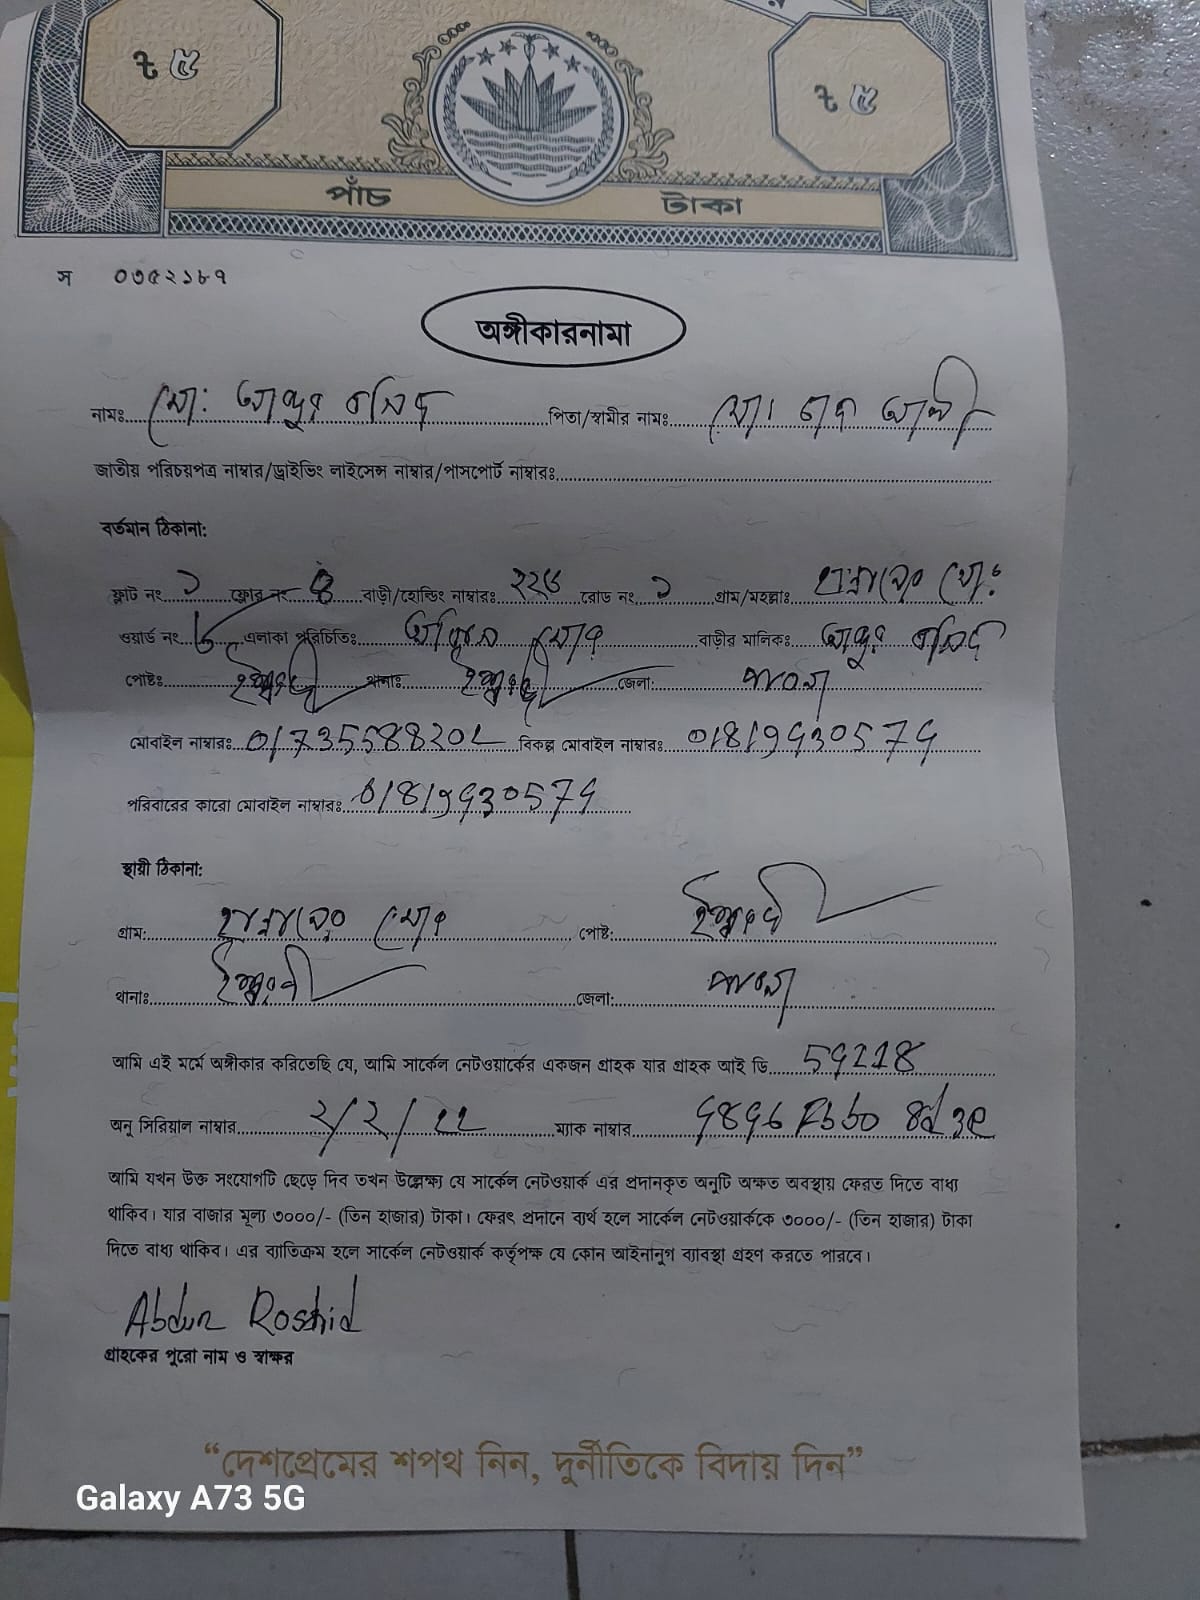 ৳ ৫ ৳ ৫
পাঁচ টাকা
স ০৩৫২১৮৭
অঙ্গীকারনামা
নামঃ মো: আব্দুর রশিদ পিতা/স্বামীর নামঃ মো। চাদ আলী
জাতীয় পরিচয়পত্র নাম্বার/ড্রাইভিং লাইসেন্স নাম্বার/পাসপোর্ট নাম্বারঃ
বর্তমান ঠিকানা:
ফ্লাট নং ১ ফ্লোর নং ৪ বাড়ী/হোল্ডিং নাম্বারঃ ২২৬ রোড নং ১ গ্রাম/মহল্লাঃ
ওয়ার্ড নং ৬ এলাকা পরিচিতিঃ বাড়ীর মালিকঃ আব্দুর রশিদ
পোষ্টঃ ঈশ্বরদী থানাঃ ঈশ্বরদী জেলা: পাবনা
মোবাইল নাম্বারঃ বিকল্প মোবাইল নাম্বারঃ
পরিবারের কারো মোবাইল নাম্বারঃ
স্থায়ী ঠিকানা:
গ্রাম: পোষ্ট: ঈশ্বরদী
থানাঃ ঈশ্বরদী জেলা: পাবনা
আমি এই মর্মে অঙ্গীকার করিতেছি যে, আমি সার্কেল নেটওয়ার্কের একজন গ্রাহক যার গ্রাহক আই ডি
অনু সিরিয়াল নাম্বার ২/২/২২ ম্যাক নাম্বার
আমি যখন উক্ত সংযোগটি ছেড়ে দিব তখন উল্লেক্ষ্য যে সার্কেল নেটওয়ার্ক এর প্রদানকৃত অনুটি অক্ষত অবস্থায় ফেরত দিতে বাধ্য
থাকিব। যার বাজার মূল্য ৩০০০/- (তিন হাজার) টাকা। ফেরৎ প্রদানে ব্যর্থ হলে সার্কেল নেটওয়ার্ককে ৩০০০/- (তিন হাজার) টাকা
দিতে বাধ্য থাকিব। এর ব্যাতিক্রম হলে সার্কেল নেটওয়ার্ক কর্তৃপক্ষ যে কোন আইনানুগ ব্যাবস্থা গ্রহণ করতে পারবে।
Abdur Roshid
গ্রাহকের পুরো নাম ও স্বাক্ষর
“দেশপ্রেমের শপথ নিন, দুর্নীতিকে বিদায় দিন”
Galaxy A73 5G